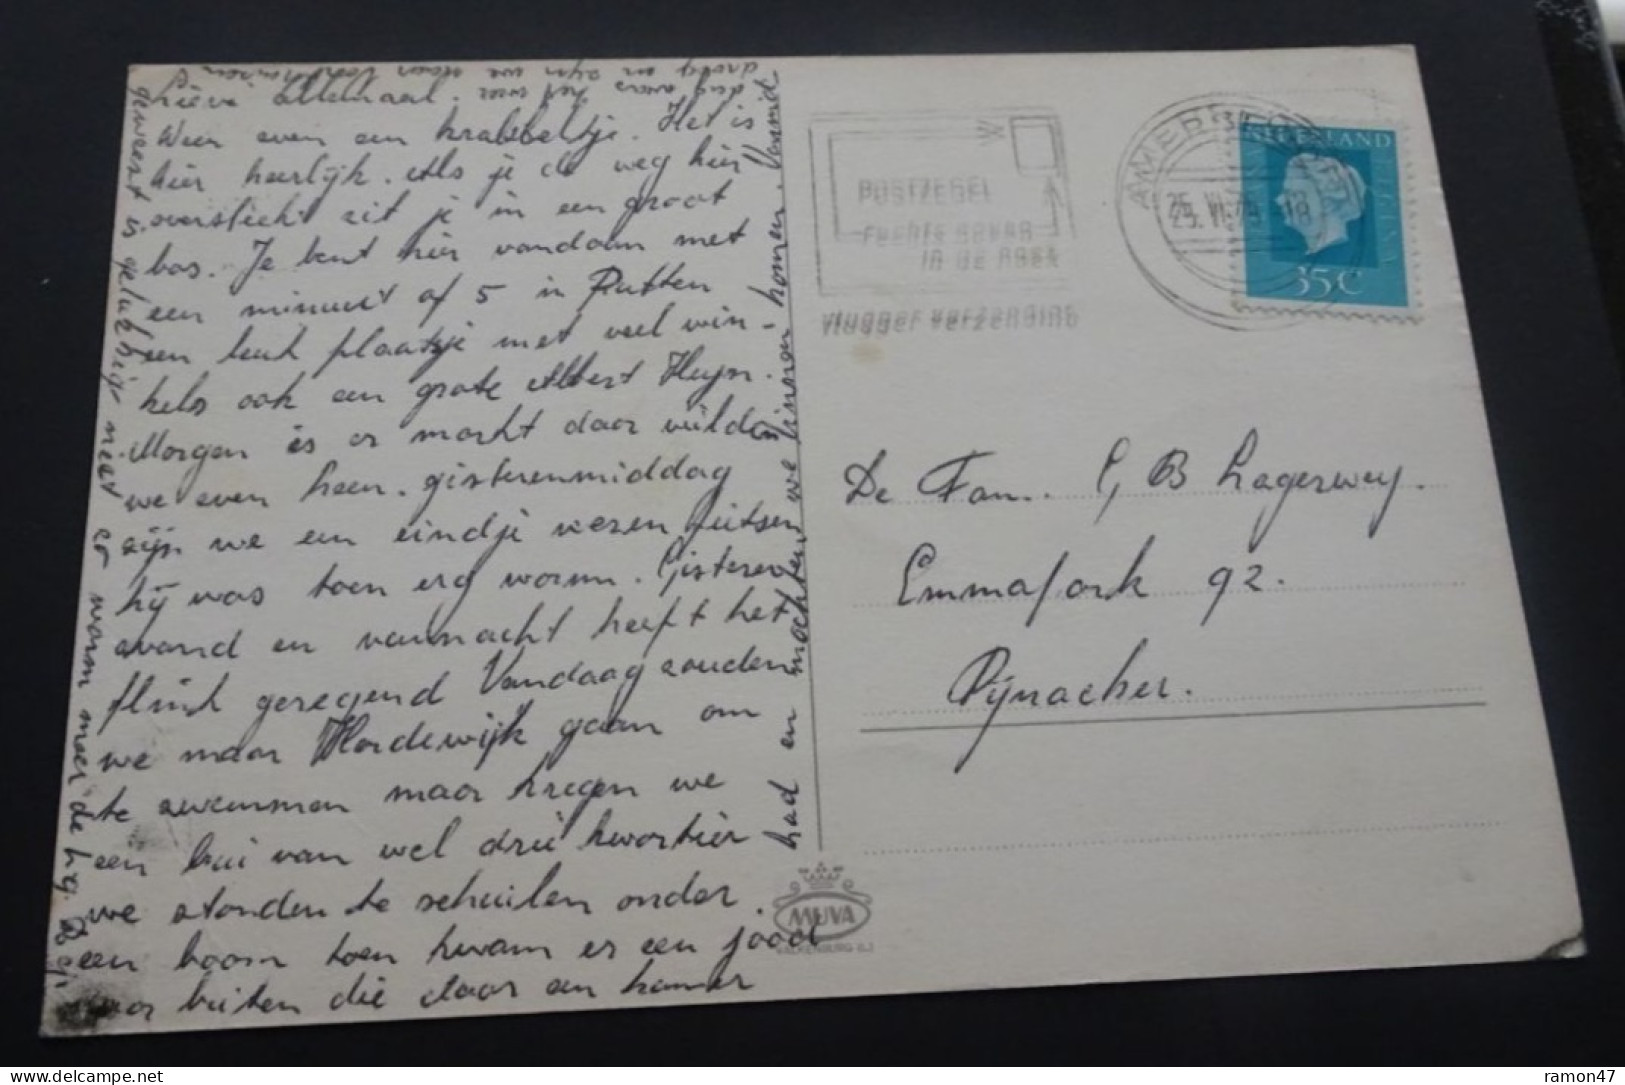 Lieve allemaal.
Weer even een krabbeltje. Het is
hier heerlijk. Als je de weg hier
oversteekt zit je in een groot
bos. Je bent hier vandaan met
een minuut of 5 in Putten
een leuk plaatsje met veel win-
kels ook een grote Albert Heijn.
Morgen is er markt daar wilden
we even heen. gisterenmiddag
zijn we een eindje wezen fietsen
hij was toen erg warm. Gisteren
avond en vannacht heeft het
flink geregend Vandaag zouden
we naar Hardewijk gaan om
te zwemmen maar kregen we
een bui van wel drie kwartier
we stonden te schuilen onder
een boom toen kwam er een
buiten die daar een kamer
had en mochten we binnen komen. Vanmid
dag was het weer
droog en zijn we naar
geweest is gelukkig niet er warm meer de
POSTZEGEL
rechts boven
in de hoek
vlugger verzending
AMERSFOORT
25. VI. 75 18
NEDERLAND
35 C
De Fam. G B Lagerwey.
Emmapark 92.
Pijnacker.
MUVA
VALKENBURG
ramon47